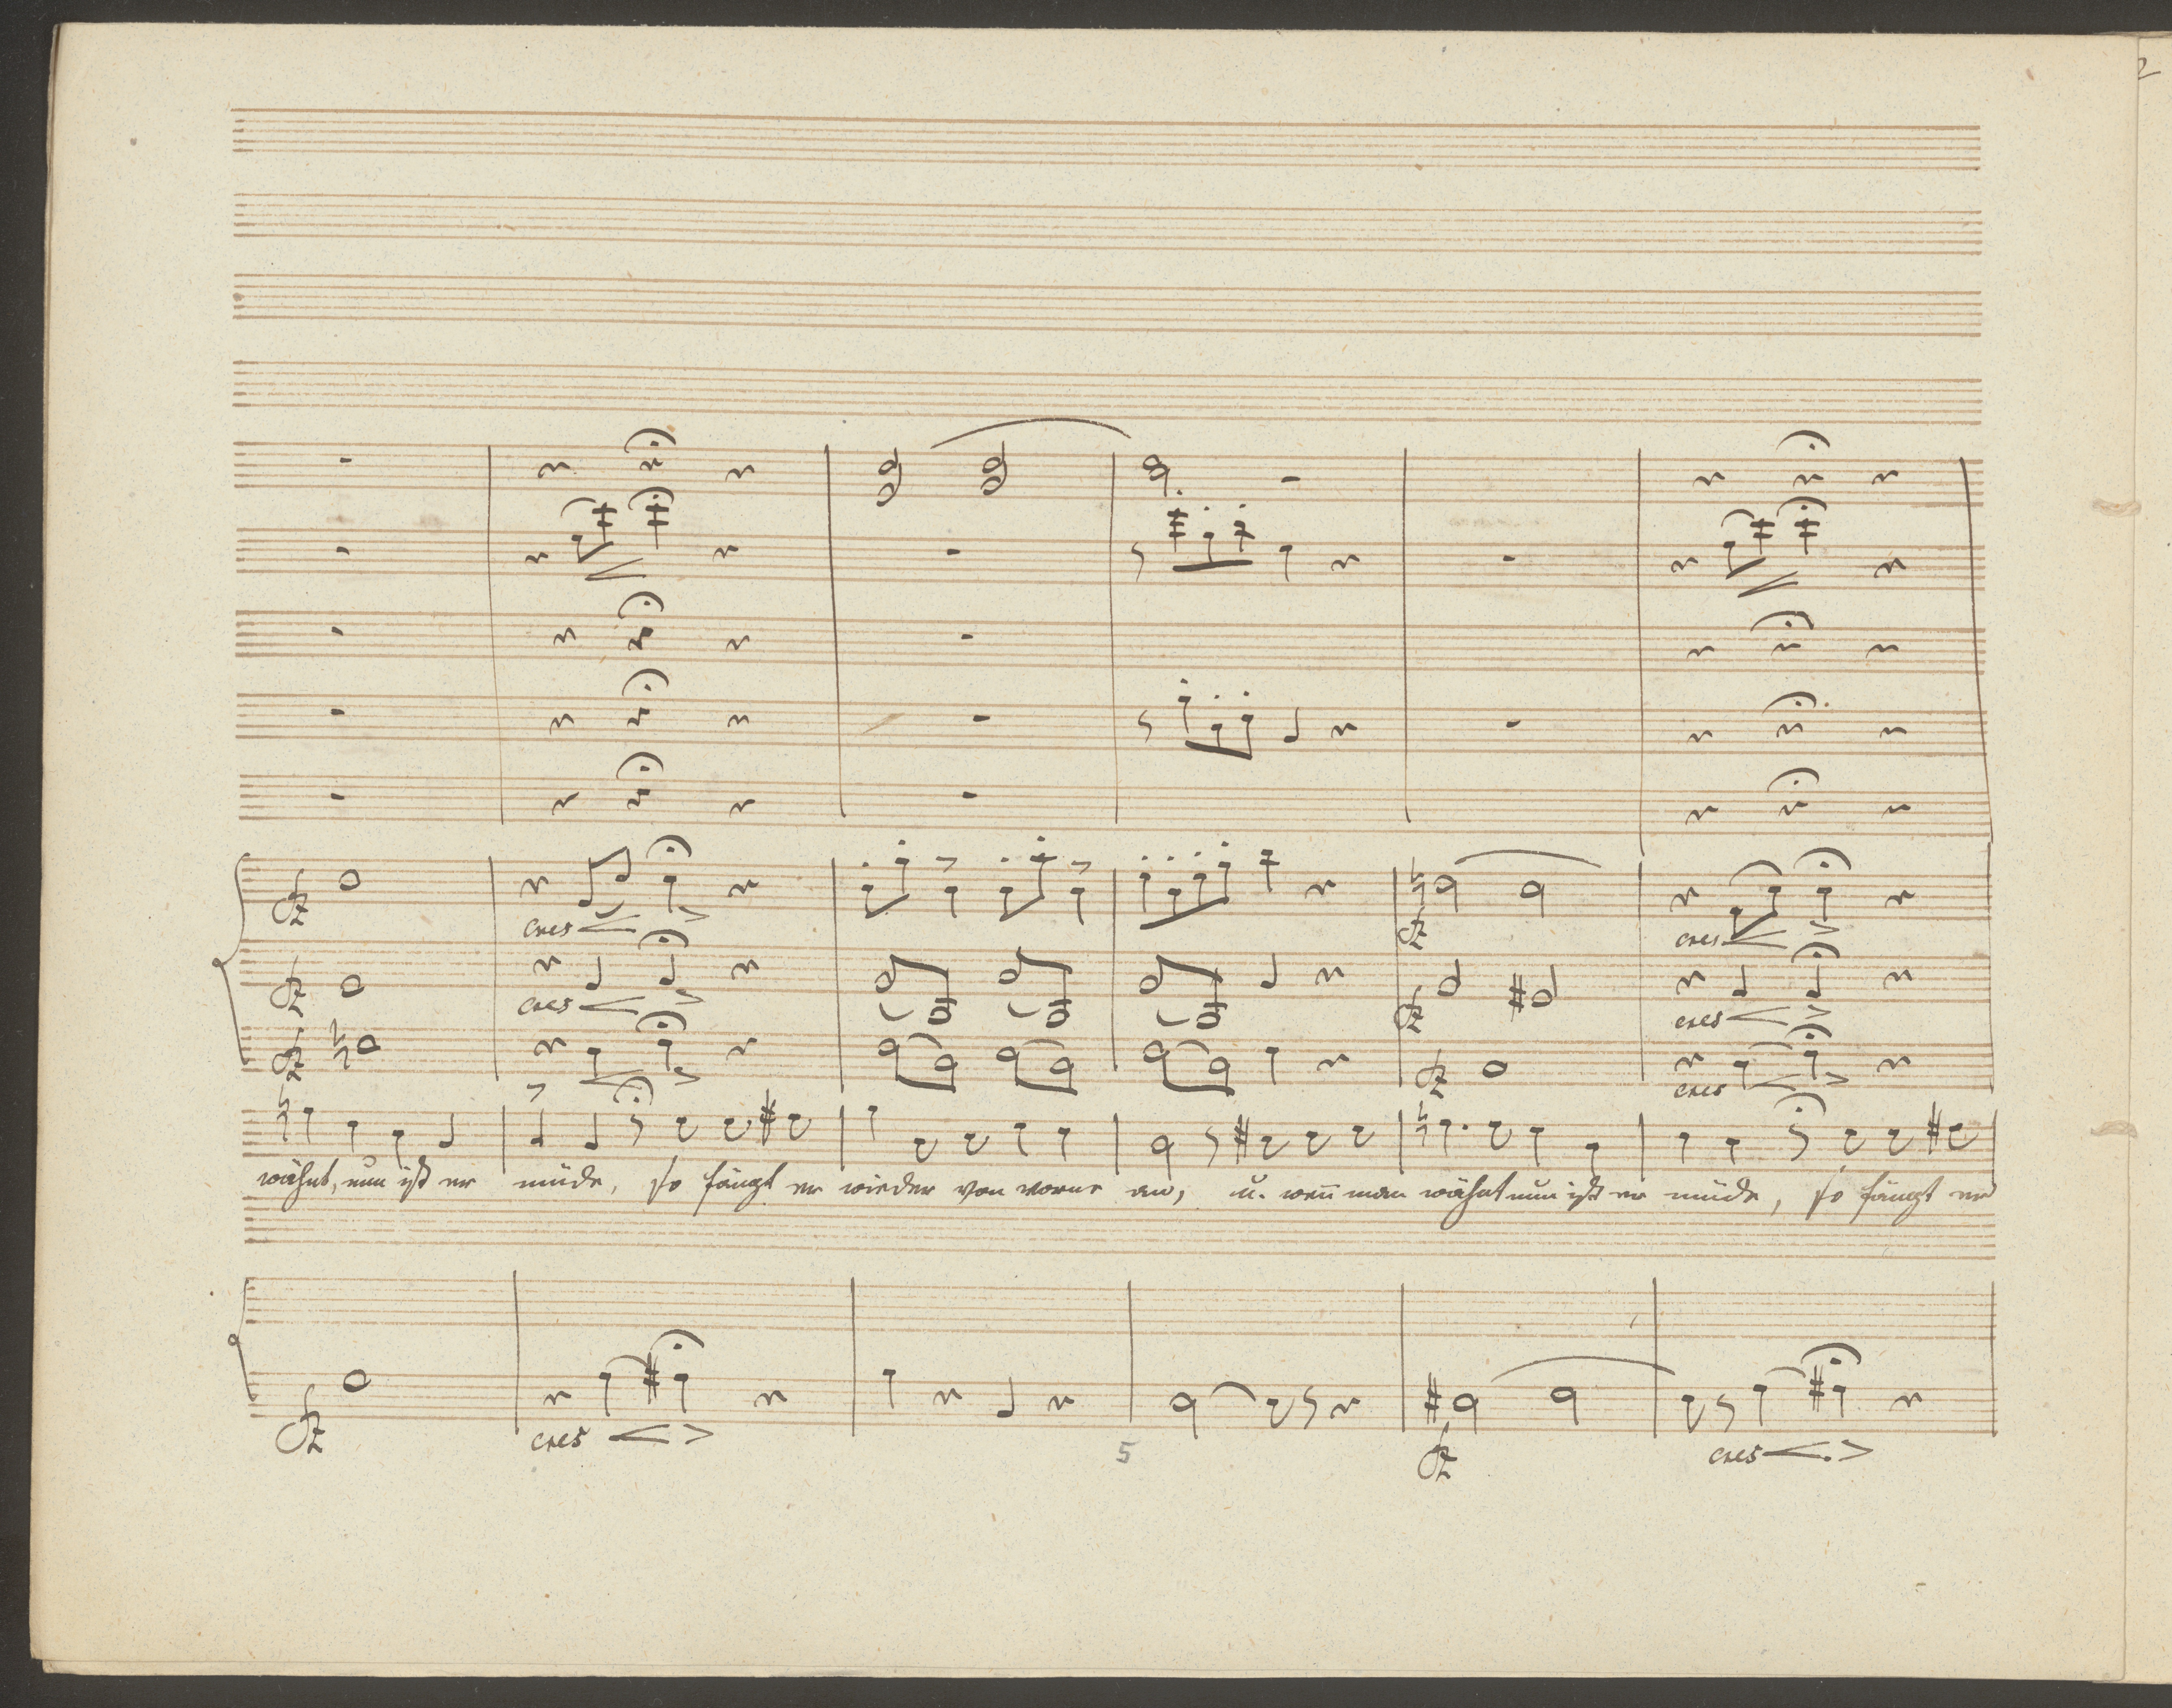 2
cres
cres
cres
cres
cres
wähnt, nun ist er müde, so fängt er wieder von vorne an, u. weñ man wähnt nun ist er müde, so fängt er
cres
cres
5